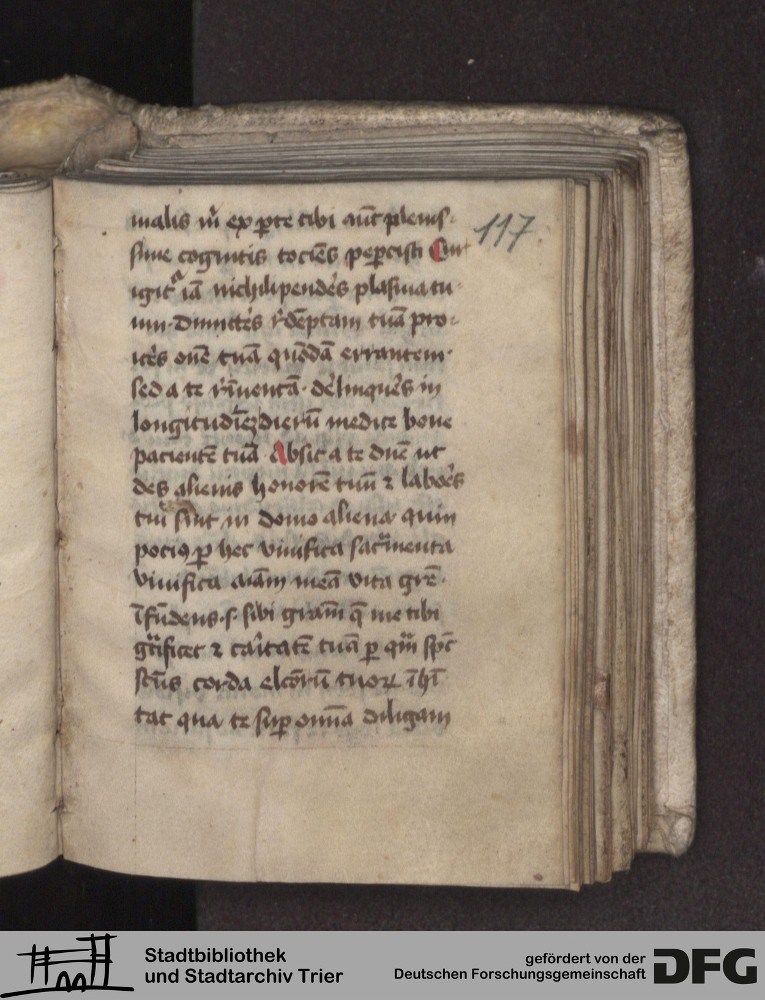 malis m̄ ex ꝑte tibi aūt plenis-
sime cognitis tociēs peꝑcisti Cur
117
igit iā nichilipendēs plasma tu-
um dimittēs rēdēptam tuā pro-
icēs ouē tuā quōdā errantem
sed a te īuentā delinquēs in
longitudīeꝫ dierū medice bone
pacientē tuā Absit a te dn̄e ut
des alienis honorē tuū ⁊ laborēs
tui sīnt in domo aliena quin
pociꝰ ꝑ hec viuifica sac̄menta
viuifica aīam meā vita
īfūdens sibi grām q̄ me tibi
gr̄tificet ⁊ caītatē tuā ꝑ quā sp̄c
sc̄ūs corda elcōrū tuoꝝ īhī-
tat qua te suꝑ omīa diligam
Stadtbibliothek
und Stadtarchiv Trier
gefördert von der
Deutschen Forschungsgemeinschaft
DFG